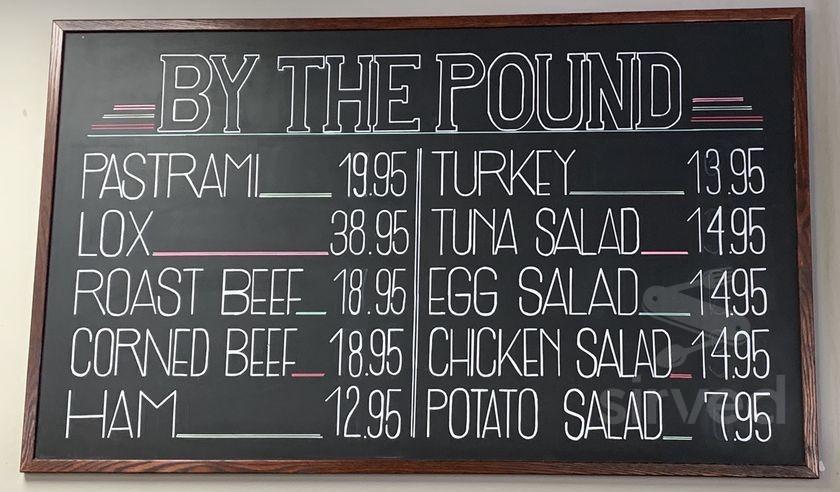 BY THE POUND
PASTRAMI 19.95
LOX 38.95
ROAST BEEF 18.95
CORNED BEEF 18.95
HAM 12.95
TURKEY 13.95
TUNA SALAD 14.95
EGG SALAD 14.95
CHICKEN SALAD 14.95
POTATO SALAD 7.95
sirved